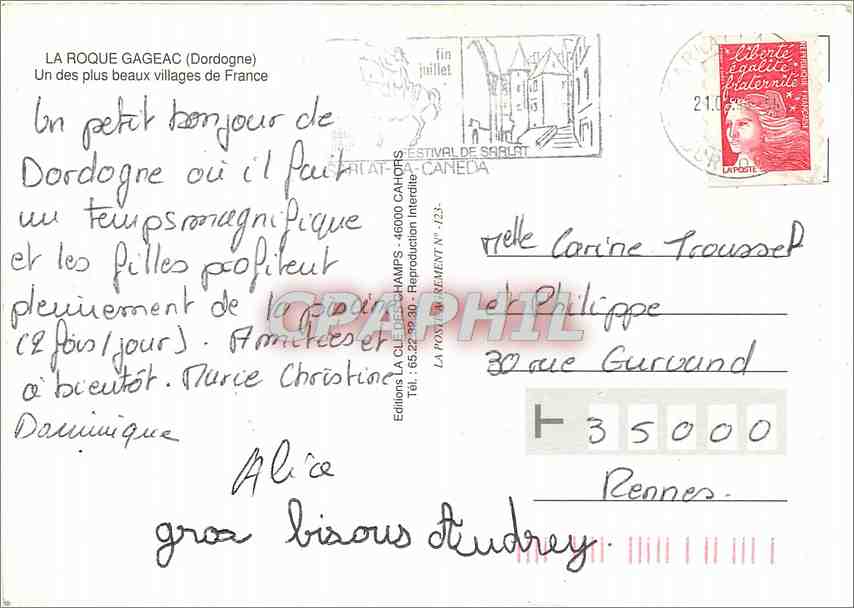 LA ROQUE GAGEAC (Dordogne)
Un des plus beaux villages de France
Un petit bonjour de
Dordogne où il fait
un temps magnifique
et les filles profitent
pleinement de la piscine
(2 fois/jour). Amitiés et
à bientôt. Marie Christine
Dominique
Alice
gros bisous Audrey.
fin
juillet
FESTIVAL DE SARLAT
SARLAT-LA-CANEDA
Editions LA CLE DES CHAMPS - 46000 CAHORS
Tél. : 65.22.32.30 - Reproduction Interdite
LA POSTE AGREMENT N° -123-
liberté
égalité
fraternité
REPUBLIQUE FRANÇAISE
LA POSTE
Melle Carine Troussel
et Philippe
30 rue Gurvand
35000
Rennes.
CPAPHIL